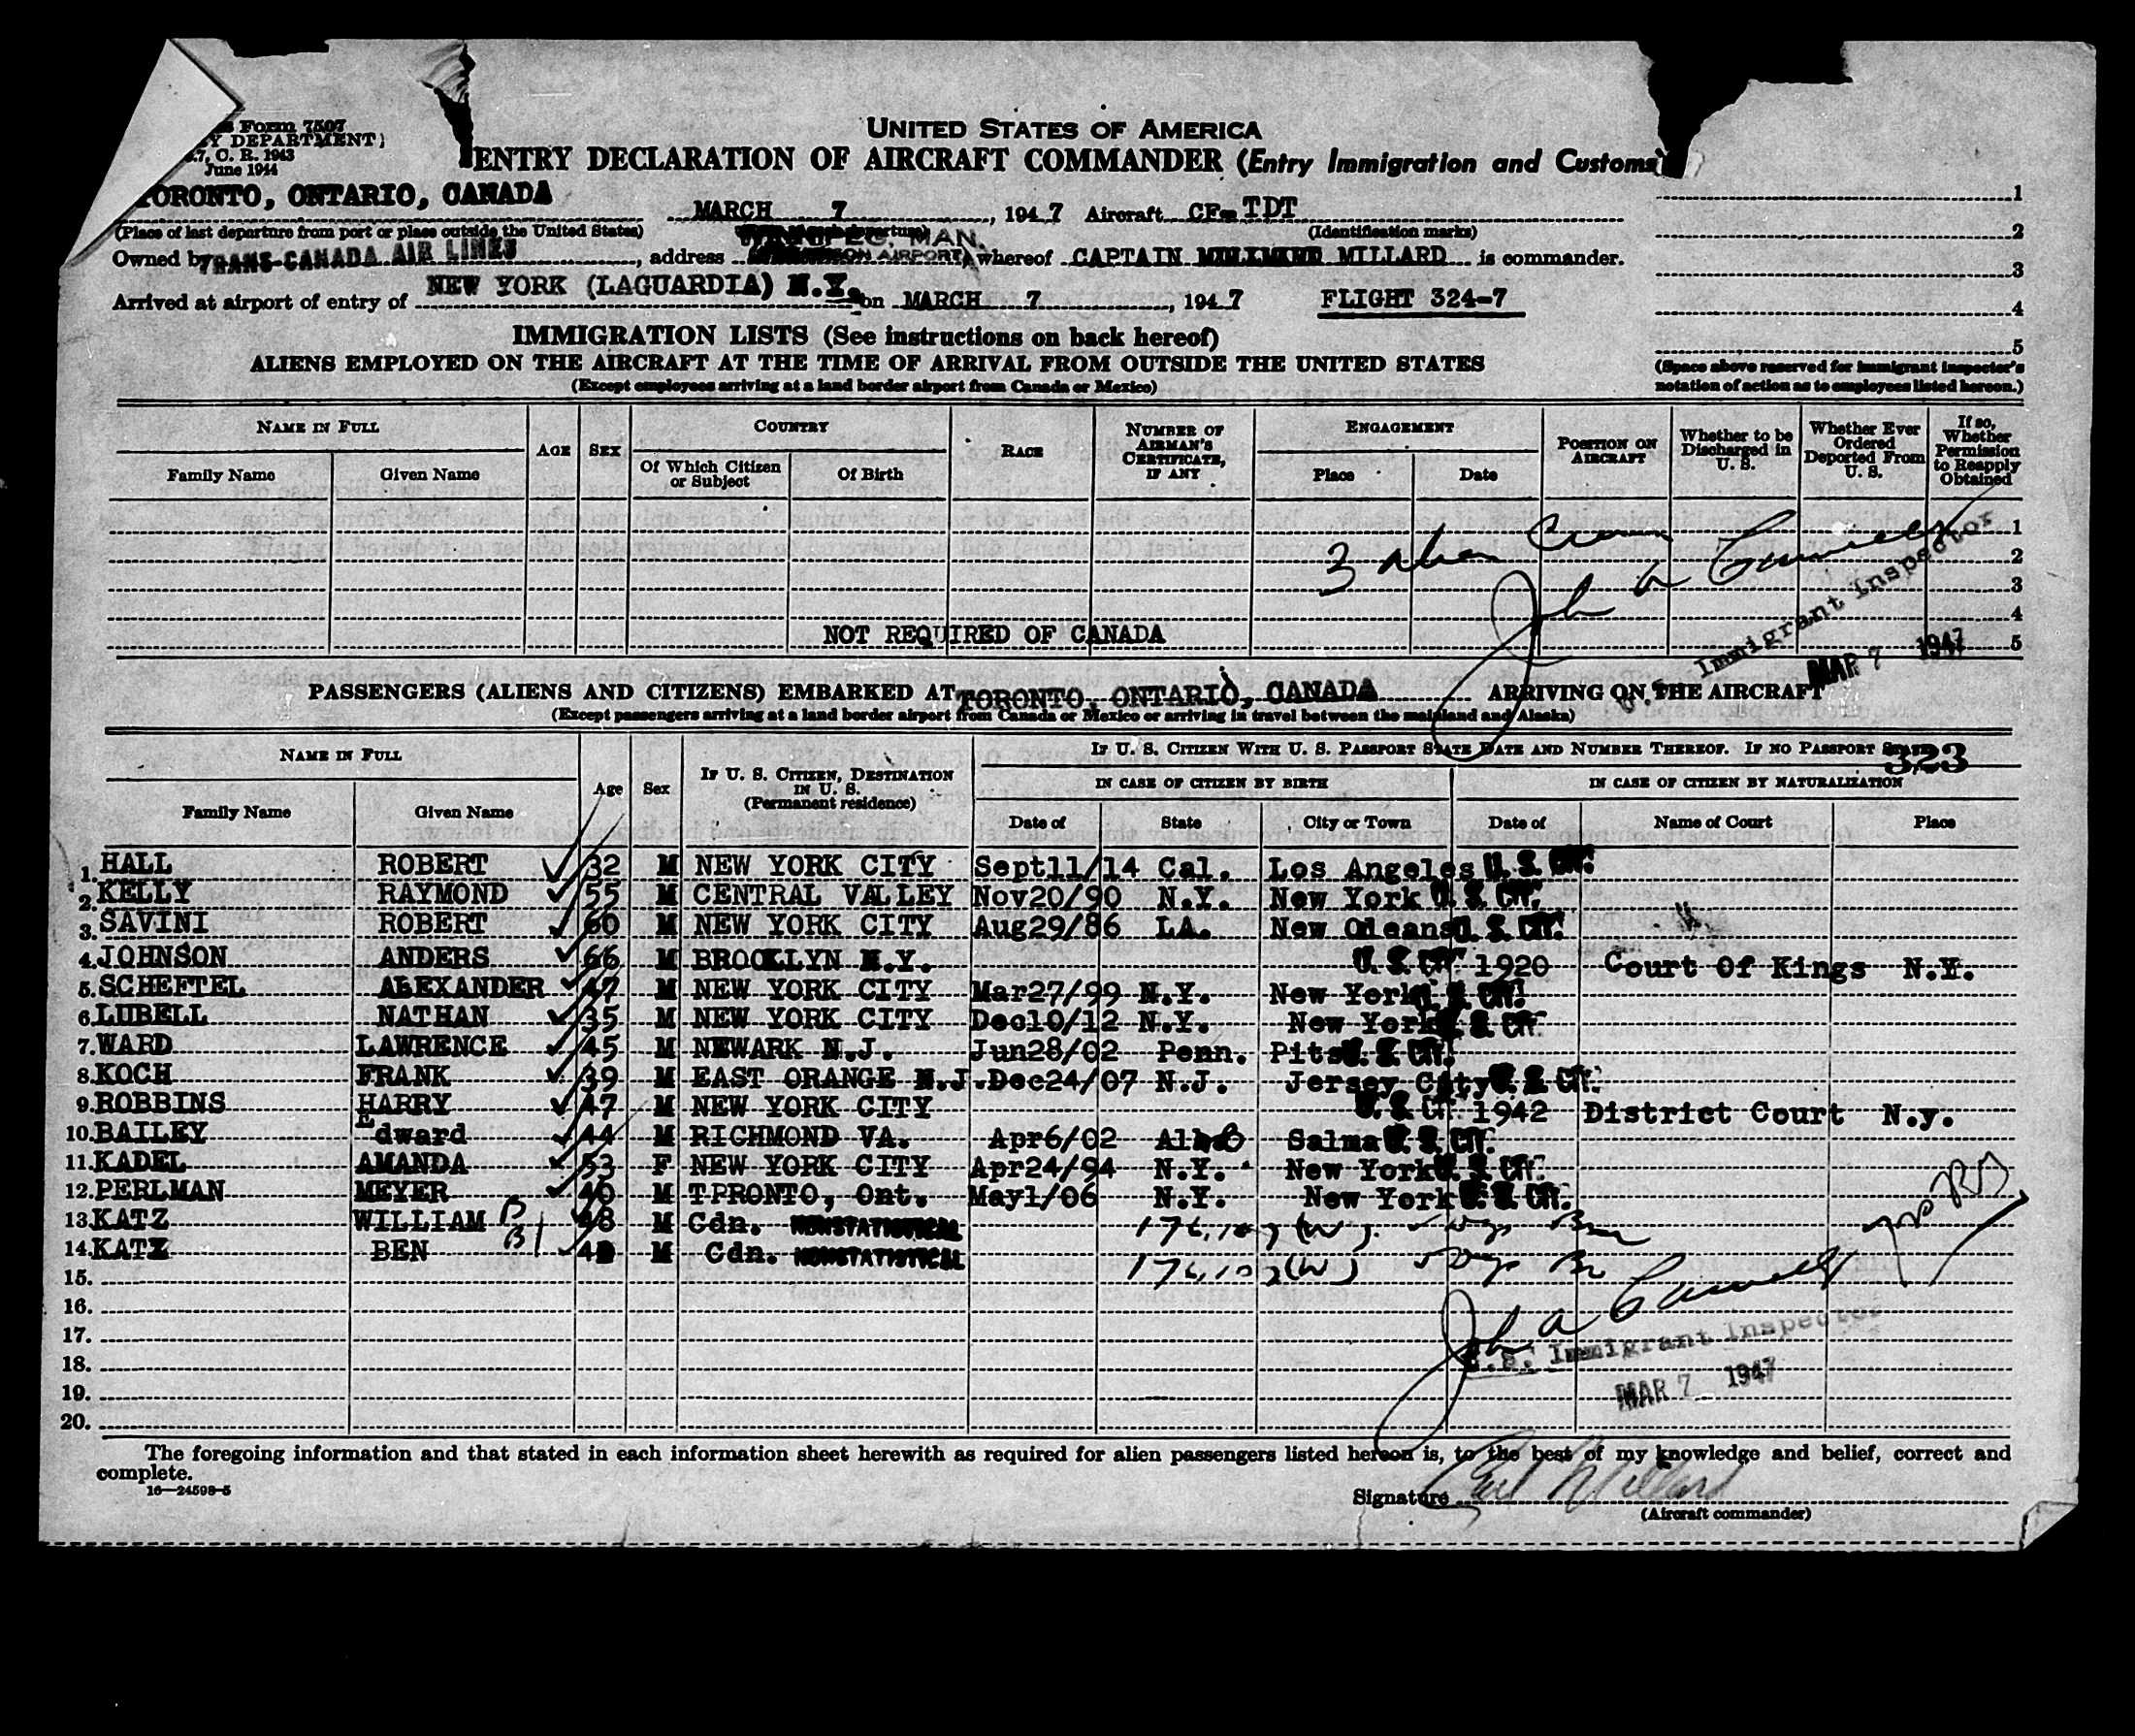 Form 7507
Y DEPARTMENT)
7, C. R. 1943
June 1944
UNITED STATES OF AMERICA
ENTRY DECLARATION OF AIRCRAFT COMMANDER (Entry Immigration and Customs)
TORONTO, ONTARIO, CANADA MARCH 7, 1947 Aircraft CF-TDT
(Place of last departure from port or place outside the United States) (Identification marks)
WINNIPEG, MAN.
Owned by TRANS-CANADA AIR LINES, address AIRPORT) whereof CAPTAIN MILLARD is commander.
Arrived at airport of entry of NEW YORK (LAGUARDIA) N.Y. on MARCH 7, 1947 FLIGHT 324-7
1
2
3
4
5
(Space above reserved for immigrant inspector's notation of action as to employees listed hereon.)
IMMIGRATION LISTS (See instructions on back hereof)
ALIENS EMPLOYED ON THE AIRCRAFT AT THE TIME OF ARRIVAL FROM OUTSIDE THE UNITED STATES
(Except employees arriving at a land border airport from Canada or Mexico)
NAME IN FULL AGE SEX COUNTRY RACE NUMBER OF AIRMAN'S CERTIFICATE, IF ANY ENGAGEMENT POSITION ON AIRCRAFT Whether to be Discharged in U. S. Whether Ever Ordered Deported From U. S. If so, Whether Permission to Reapply Obtained
Family Name Given Name Of Which Citizen or Subject Of Birth Place Date
1
2
3 alien Crew
3
John A
4
U.S. Immigrant Inspector
NOT REQUIRED OF CANADA 5
MAR 7 1947
PASSENGERS (ALIENS AND CITIZENS) EMBARKED AT TORONTO, ONTARIO, CANADA ARRIVING ON THE AIRCRAFT
(Except passengers arriving at a land border airport from Canada or Mexico or arriving in travel between the mainland and Alaska)
NAME IN FULL Age Sex IF U. S. CITIZEN, DESTINATION IN U. S. (Permanent residence) IF U. S. CITIZEN WITH U. S. PASSPORT STATE DATE AND NUMBER THEREOF. IF NO PASSPORT STATE
323
IN CASE OF CITIZEN BY BIRTH IN CASE OF CITIZEN BY NATURALIZATION
Family Name Given Name Date of State City or Town Date of Name of Court Place
1. HALL ROBERT 32 M NEW YORK CITY Sept11/14 Cal. Los Angeles U. S. CIT.
2. KELLY RAYMOND 55 M CENTRAL VALLEY Nov20/90 N.Y. New York U. S. CIT.
3. SAVINI ROBERT 60 M NEW YORK CITY Aug29/86 LA. New Oleans U. S. CIT.
4. JOHNSON ANDERS 66 M BROOKLYN N.Y. U. S. CIT. 1920 Court Of Kings N.Y.
5. SCHEFTEL ALEXANDER 47 M NEW YORK CITY Mar27/99 N.Y. New York U. S. CIT.
6. LUBELL NATHAN 35 M NEW YORK CITY Dec10/12 N.Y. New York U. S. CIT.
7. WARD LAWRENCE 45 M NEWARK N.J. Jun28/02 Penn. Pits U. S. CIT.
8. KOCH FRANK 39 M EAST ORANGE N.J. Dec24/07 N.J. Jersey City U. S. CIT.
9. ROBBINS HARRY 47 M NEW YORK CITY U. S. CIT. 1942 District Court N.y.
10. BAILEY Edward 44 M RICHMOND VA. Apr6/02 Salma U. S. CIT.
11. KADEL AMANDA 53 F NEW YORK CITY Apr24/94 N.Y. New York U. S. CIT.
12. PERLMAN MEYER 40 M TPRONTO, Ont. May1/06 N.Y. New York U. S. CIT.
13. KATZ WILLIAM B 48 M Cdn. NONSTATISTICAL
14. KATZ BEN B 4 M Cdn. NONSTATISTICAL
15.
16.
17. John A
U.S. Immigrant Inspector
18.
MAR 7 1947
19.
20.
The foregoing information and that stated in each information sheet herewith as required for alien passengers listed hereon is, to the best of my knowledge and belief, correct and
complete.
16—24598-5
Signature Millard
(Aircraft commander)